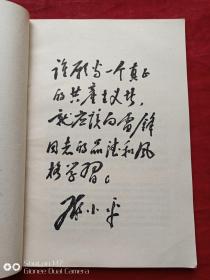 谁愿当一个真正
的共产主义者，
就应该向雷锋
同志的品德和风
格学习。
邓小平